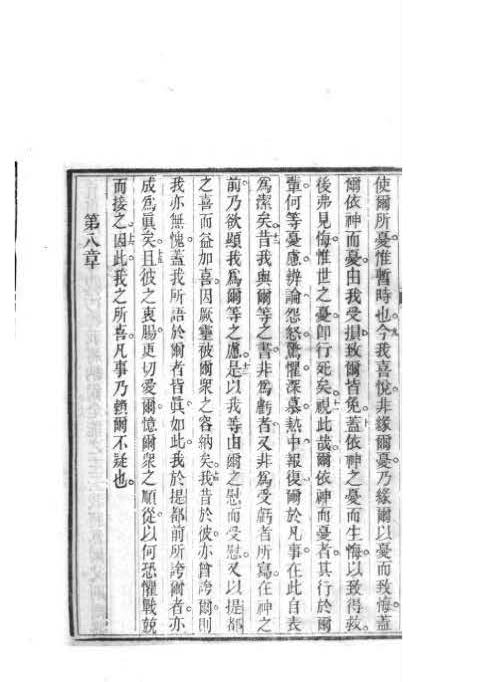 使爾所憂惟暫時也九今我喜悅非緣爾憂乃緣爾以憂而致悔蓋
爾依神而憂由我受損致爾皆免蓋依神之憂而生悔以致得救
後弗見悔惟世之憂卽行死矣十一視此哉爾依神而憂者其行於爾
輩何等憂慮辨論怨怒驚懼深慕熱中報復爾於凡事在此自表
爲潔矣十二昔我與爾等之書非爲虧者又非爲受虧者所寫在神之
前乃欲顯我爲爾等之慮十三是以我等由爾之慰而受慰又以提都
之喜而益加喜因厥靈被爾衆之容納矣十四我昔於彼亦曾誇爾則
我亦無愧蓋我所語於爾者皆眞如此我於提都前所誇爾者亦
成爲眞矣十五且彼之衷腸更切愛爾憶爾衆之順從以何恐懼戰兢
而接之十六因此我之所喜凡事乃賴爾不疑也
第八章